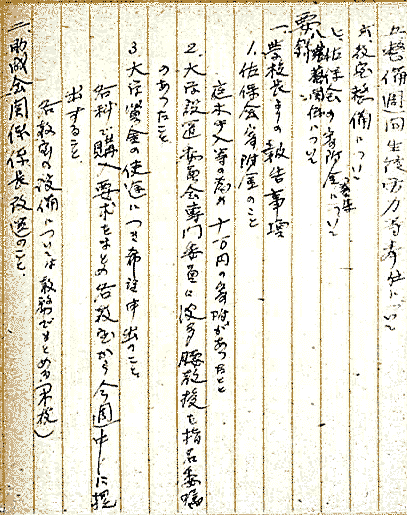 五、整備週間生徒労力奉仕について
六、教室整備について
七、佐保会の寄附金について
八、事務関係について
要録
一、学校長よりの報告事項
1. 佐保会寄附金のこと
十万円の寄附があったこと
2. 大学設置委員会専門委員に波多腰教授を指名委嘱
のあったこと
3. 大学資金の使途につき希望申出のこと
各科で購入要求をまとめ各教室から今週中に提
出すること
各教室の設備については教務でまとめる(本校)
二、助成会関係係長改選のこと